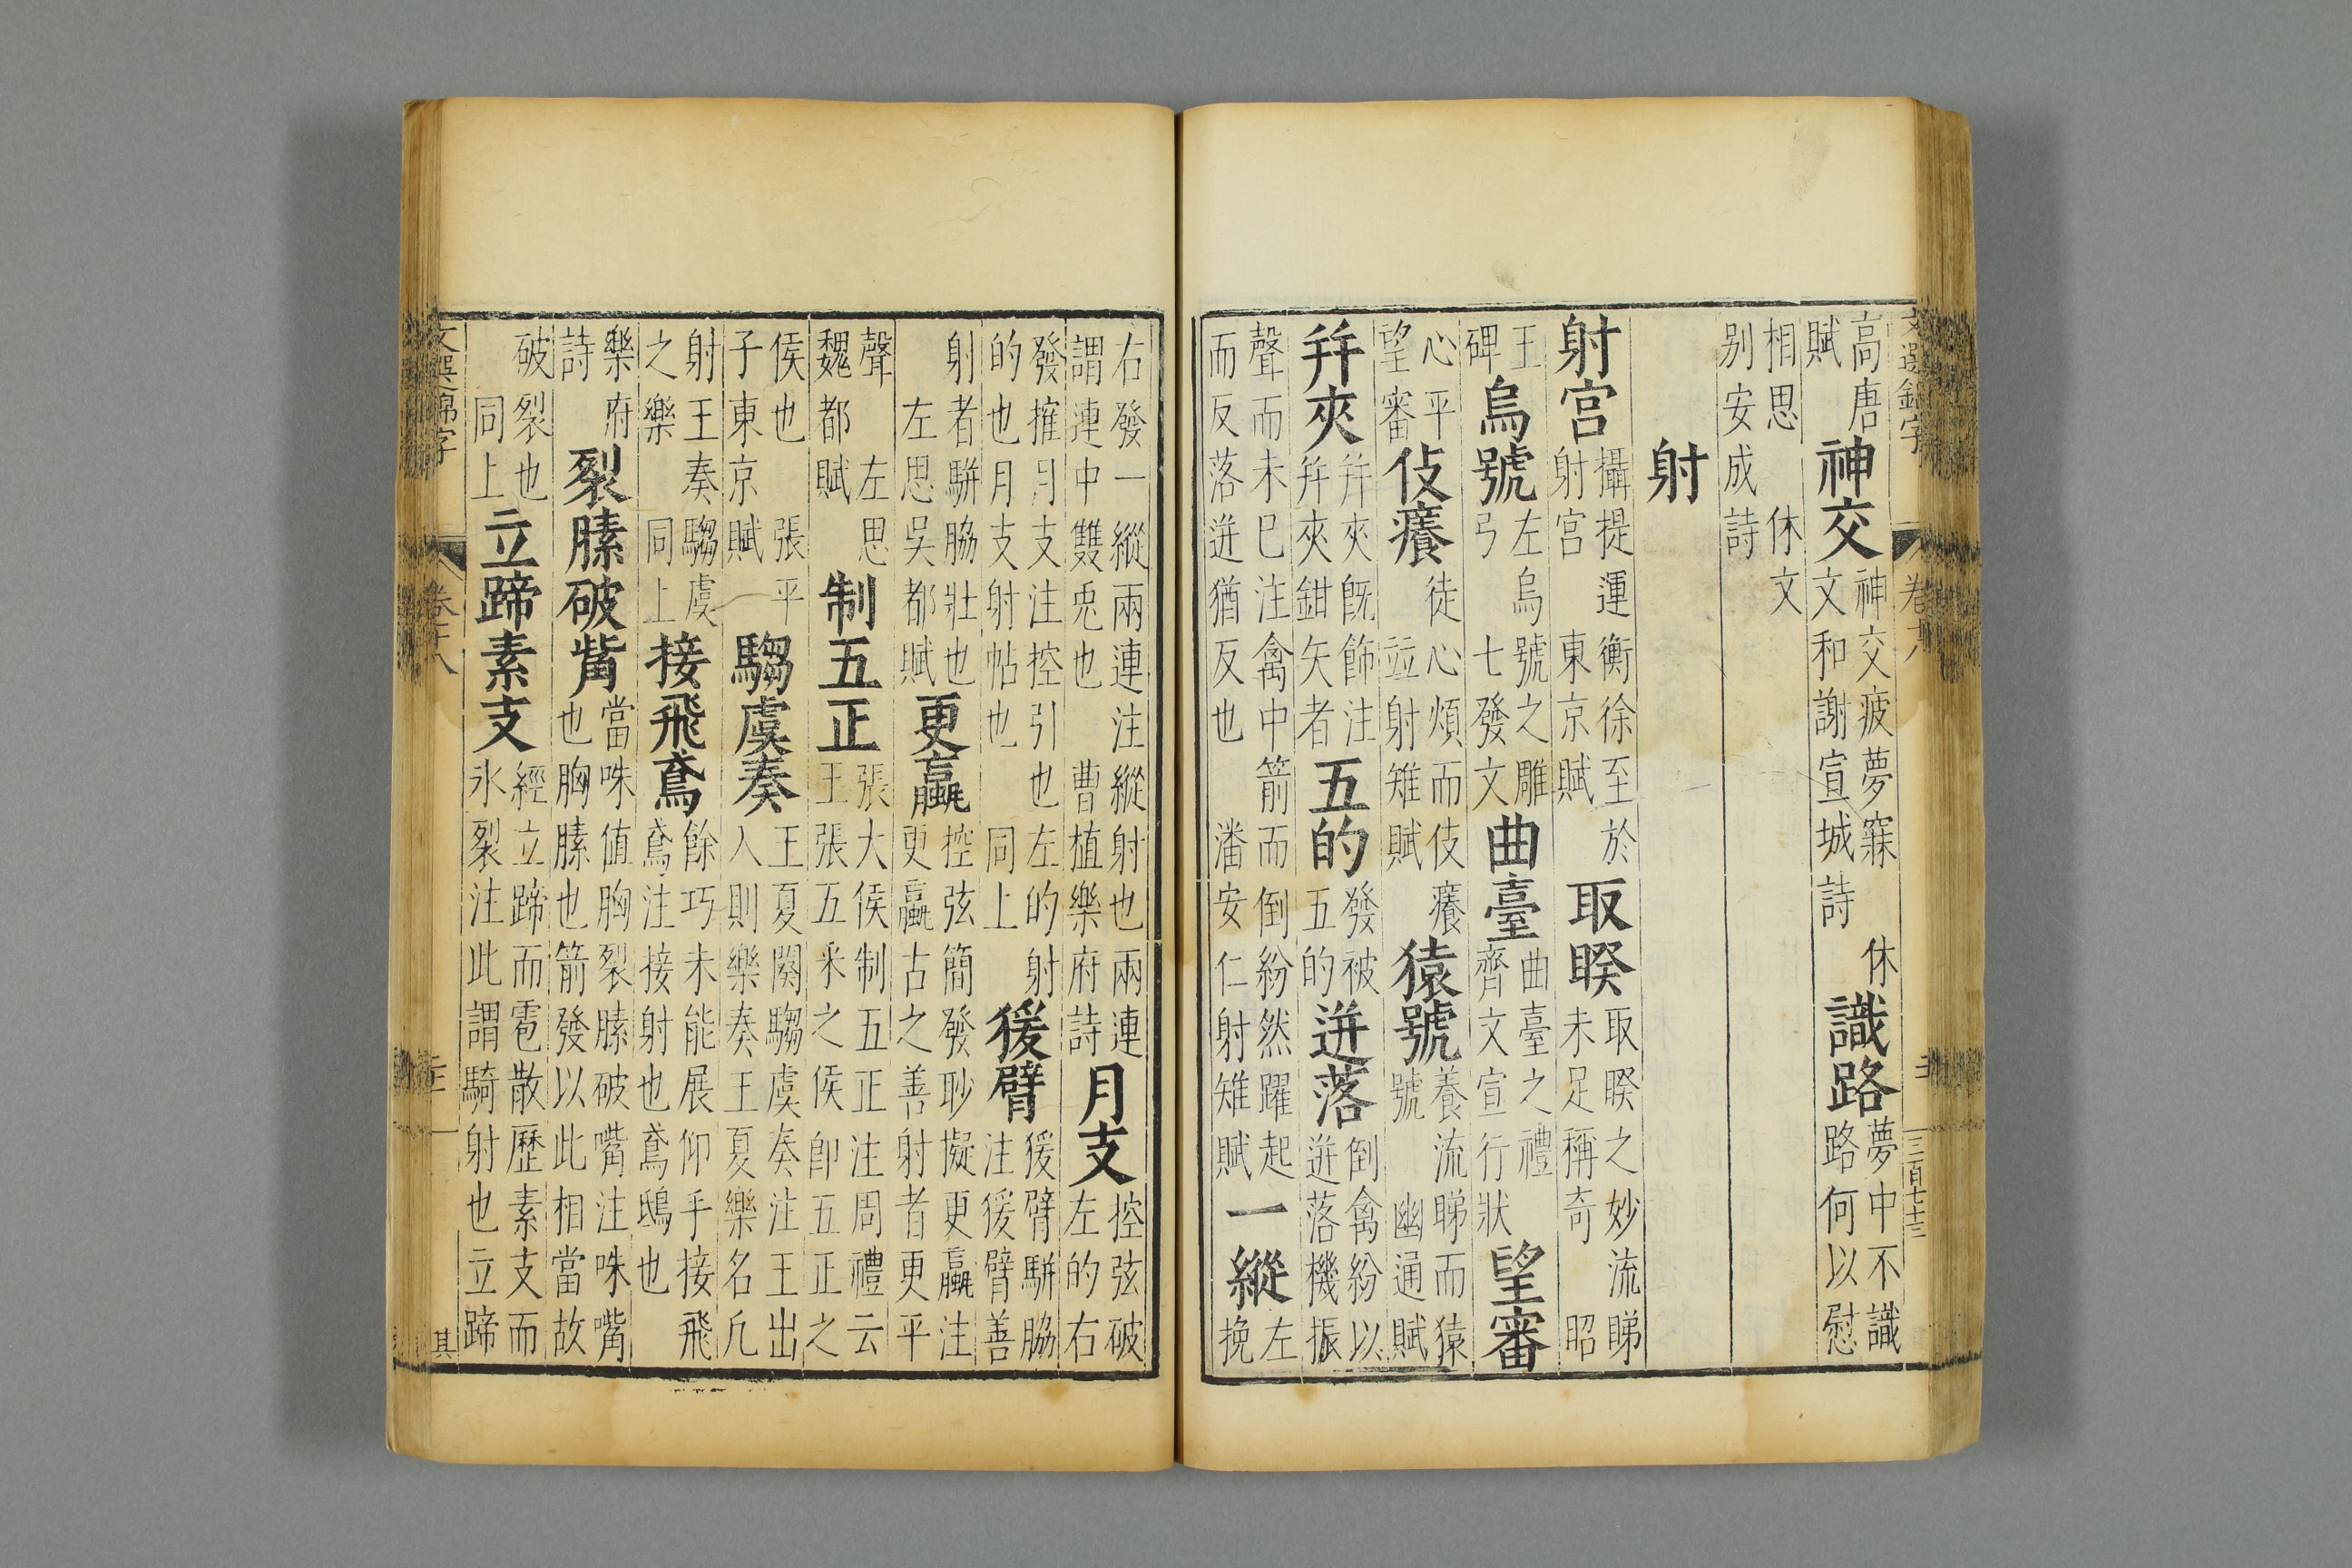 高唐賦神交神交疲夢寐文和謝宣城詩休識路夢中不識路何以慰
相思別安成詩休文
射
射宮攝提運衡徐至於射宮東京賦取睽取睽之妙未足稱奇流睇昭
王碑烏號左烏號之雕弓七發文曲臺曲臺之禮齊文宣行狀望審
心平望審伎癢徒心煩而伎癢竝射雉賦猿號養流睇而猿號幽通賦
幷夾幷夾既飾注幷夾鉗矢者五的發被五的迸落倒禽紛以迸落機振
聲而未已注禽中箭而倒紛然躍起而反落迸猶反也潘安仁射雉賦一縱左挽
右發一縱兩連注縱射也兩連謂連中雙兎也曹植樂府詩月支控弦破左的右
發摧月支注控引也左的射的也月支射帖也同上猨臂猨臂駢脇注猨臂善
射者駢脇壯也左思吳都賦更羸控弦簡發眇擬更羸注更羸古之善射者更平
聲左思魏都賦制五正張大侯制五正注周禮云王張五釆之侯卽五正之
侯也張平子東京賦騶虞奏王夏闋騶虞奏注王出入則樂奏王夏樂名凡
射王奏騶虞之樂同上接飛鳶餘巧未能展仰手接飛鳶注接射也鳶鴟也
樂府詩裂膆破觜當咮値胸裂膆破嘴注咮嘴也胸膆也箭發以此相當故
破裂也同上立蹄素支經立蹄而雹散歷素支而氷裂注此謂騎射也立蹄
文選錦字
卷
三百七十三
其